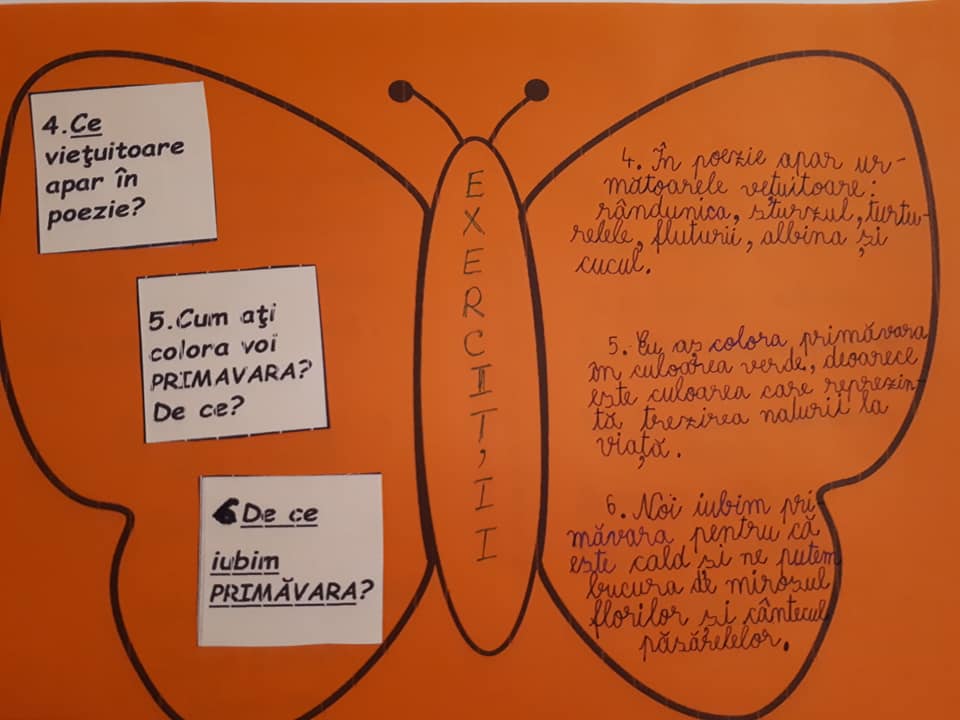 4.Ce
vieţuitoare
apar în
poezie?
5.Cum aţi
colora voi
PRIMAVARA?
De ce?
6 De ce
iubim
PRIMĂVARA?
EXERCIȚII
4. În poezie apar ur-
mătoarele vețuitoare:
rândunica, sturzul, turtu-
relele, fluturii, albina și
cucul.
5. Eu aș colora primăvara
în culoarea verde, deoarece
este culoarea care reprezin-
tă trezirea naturii la
viață.
6. Noi iubim pri-
măvara pentru că
este cald și ne putem
bucura de mirosul
florilor și cântecul
păsărelelor.